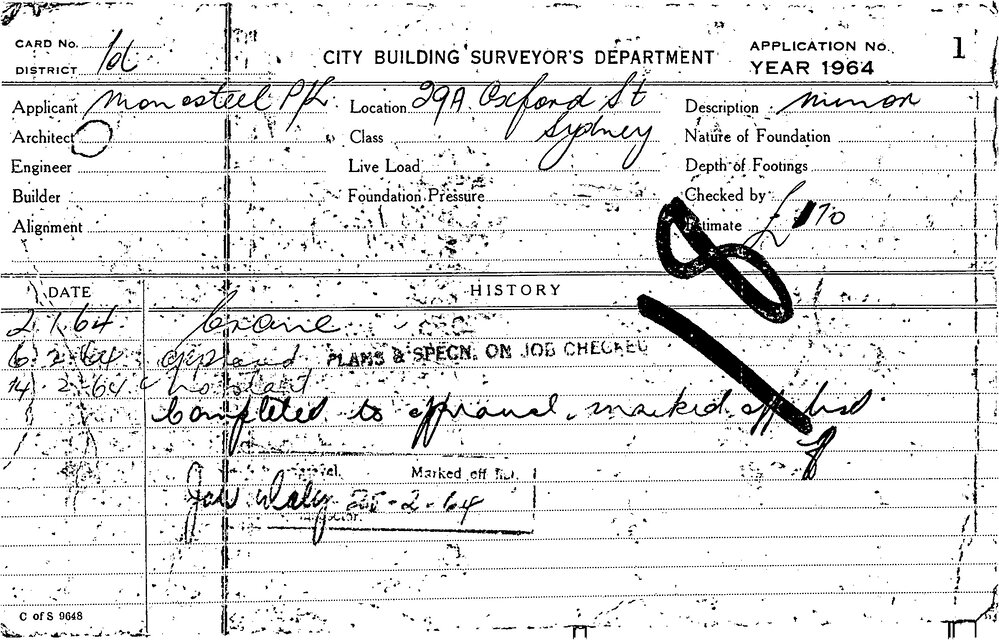 CARD No. 1d
DISTRICT
CITY BUILDING SURVEYOR'S DEPARTMENT
APPLICATION No. 1
YEAR 1964
Applicant Monosteel P/L Location 29A Oxford St Description minor
Architect Class Sydney Nature of Foundation
Engineer Live Load Depth of Footings
Builder Foundation Pressure Checked by
Alignment Estimate £ 170
DATE HISTORY
2 1 64
6. 2. 64 approved PLANS & SPECN. ON JOB CHECKED
14. 2. 64 no start
Completed to approval. marked off list.
Marked off list.
25-2-64
C of S 9648